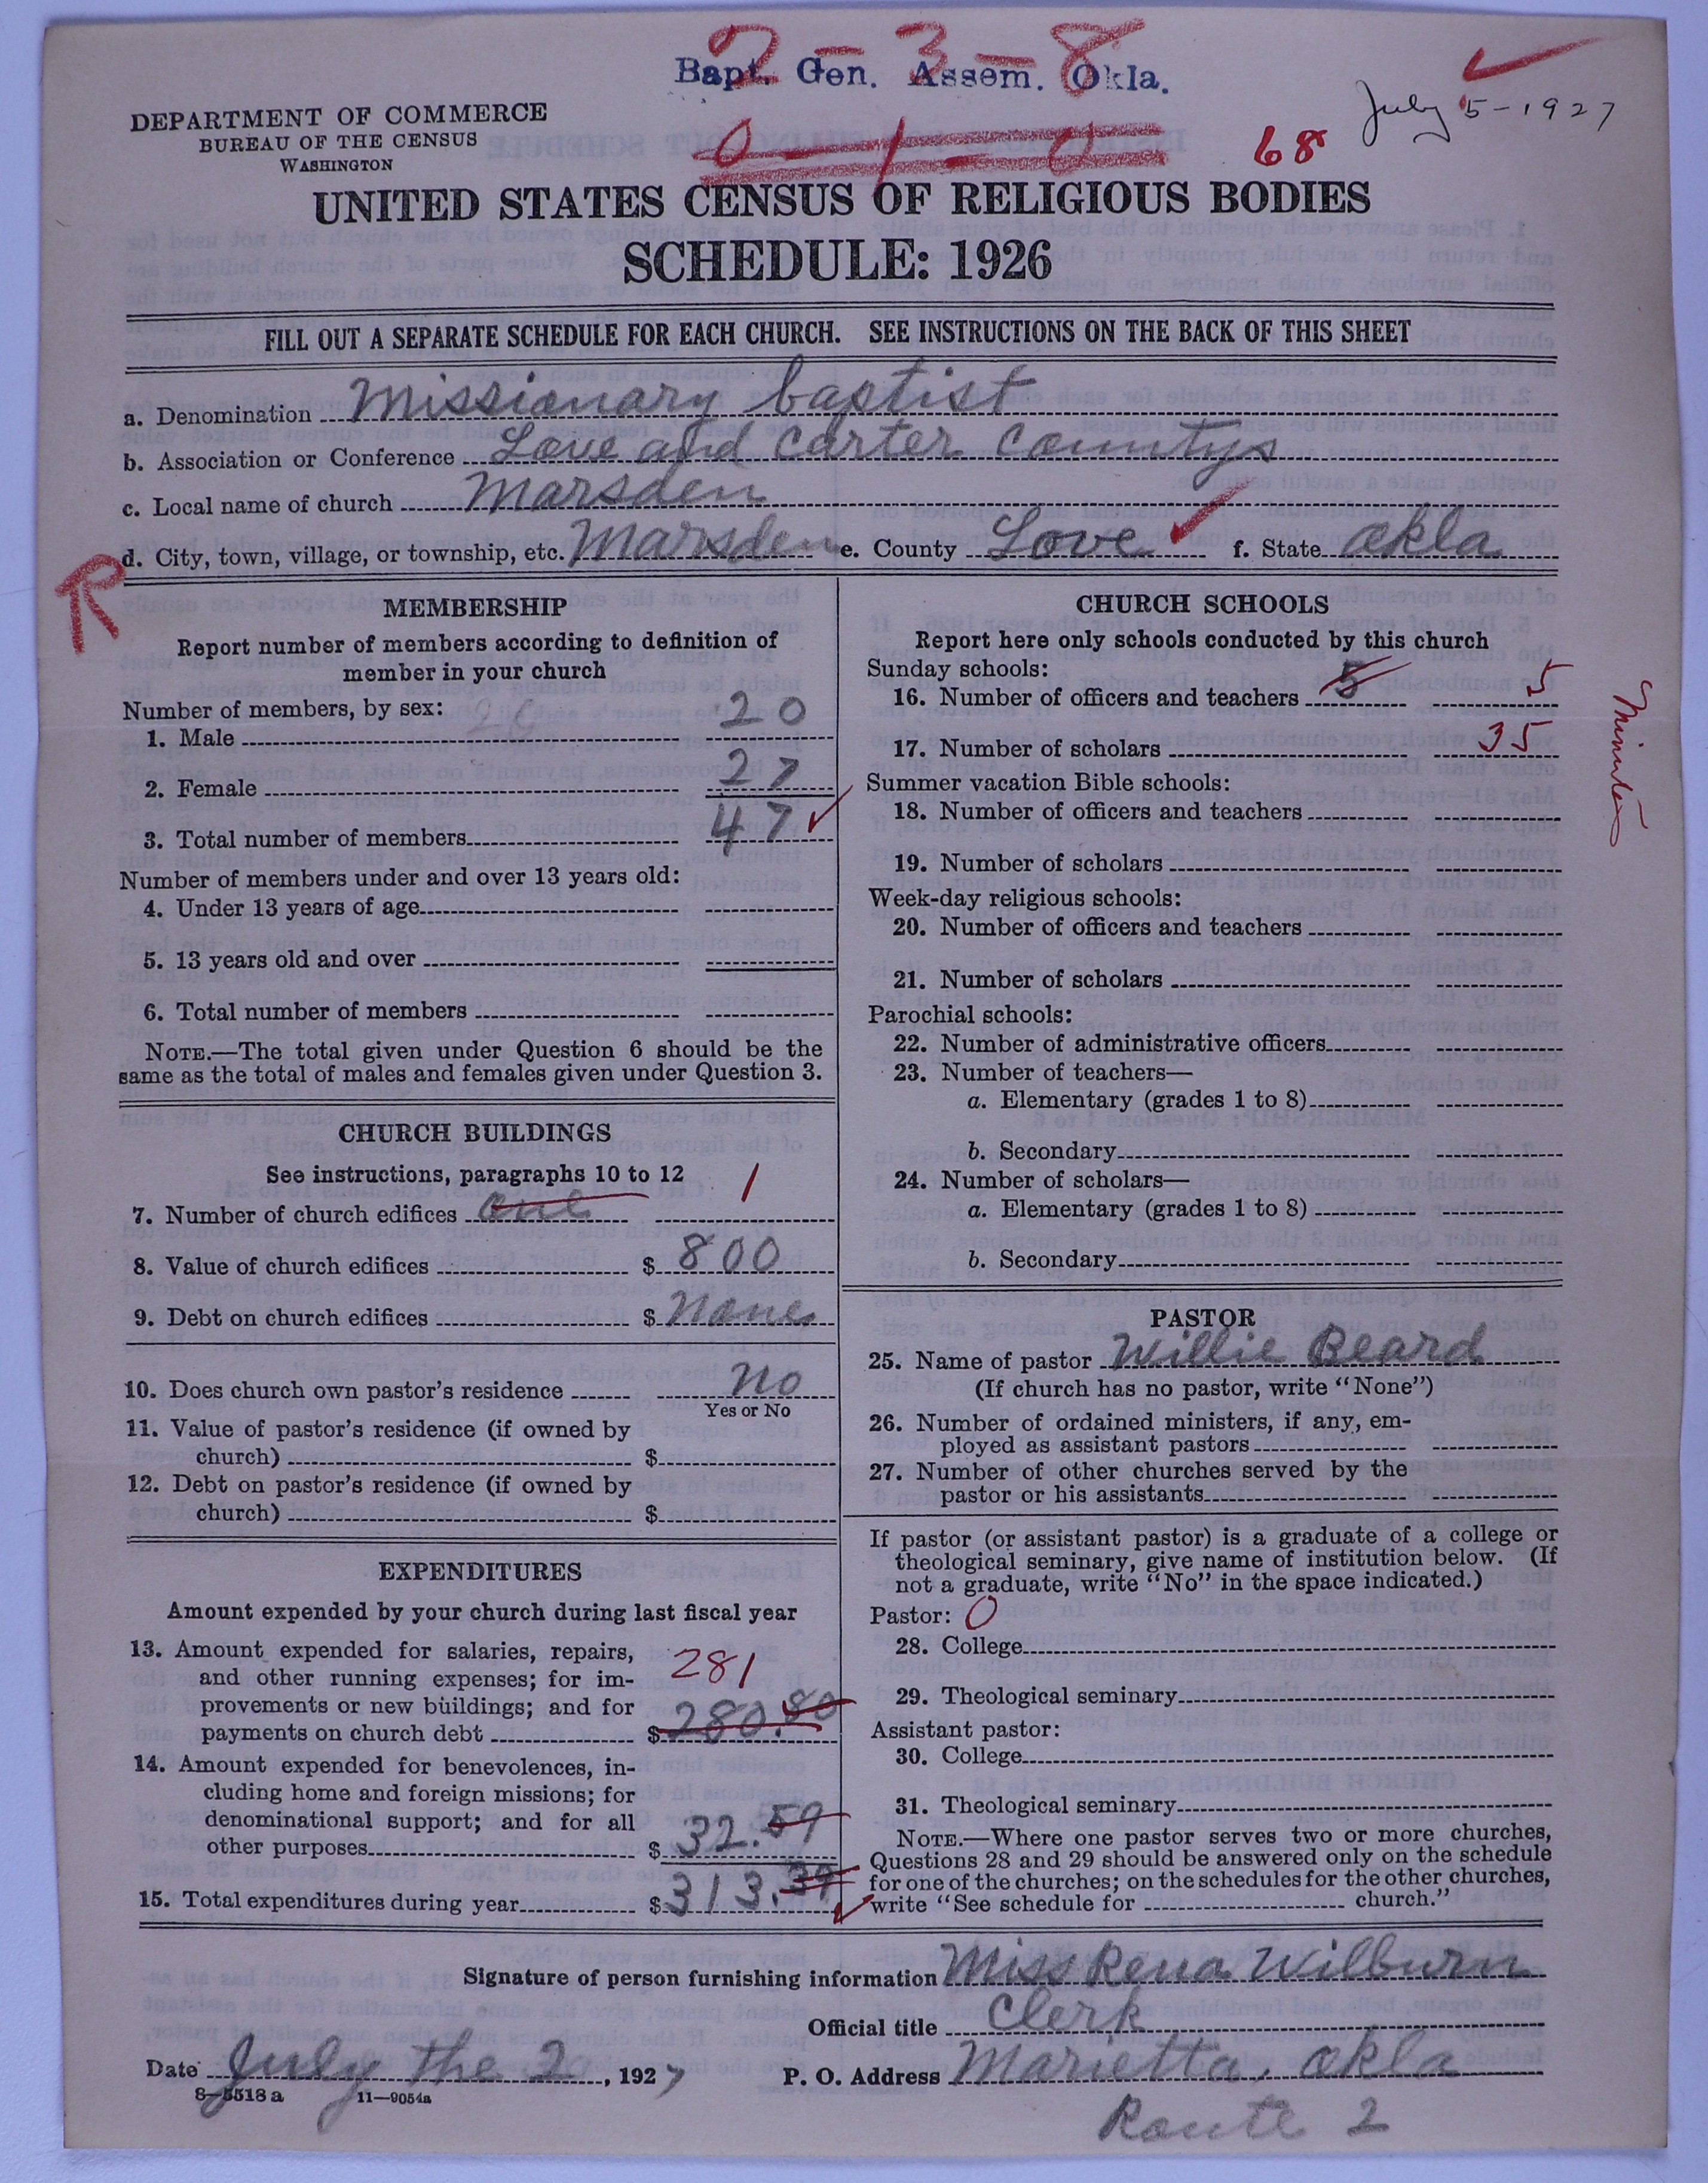 2-3-8
Bapt. Gen. Assem. Okla.
July 5-1927
DEPARTMENT OF COMMERCE
BUREAU OF THE CENSUS
WASHINGTON
0-1-0
68
UNITED STATES CENSUS OF RELIGIOUS BODIES
SCHEDULE: 1926
FILL OUT A SEPARATE SCHEDULE FOR EACH CHURCH. SEE INSTRUCTIONS ON THE BACK OF THIS SHEET
a. Denomination Missionary baptist
b. Association or Conference Love and Carter Countys
c. Local name of church Marsden
d. City, town, village, or township, etc. Marsden e. County Love f. State Okla
R
MEMBERSHIP
Report number of members according to definition of
member in your church
Number of members, by sex:
1. Male 20
2. Female 27
3. Total number of members 47
Number of members under and over 13 years old:
4. Under 13 years of age
5. 13 years old and over
6. Total number of members
NOTE.—The total given under Question 6 should be the
same as the total of males and females given under Question 3.
CHURCH BUILDINGS
See instructions, paragraphs 10 to 12
7. Number of church edifices one 1
8. Value of church edifices $ 800
9. Debt on church edifices $ None
10. Does church own pastor's residence No
Yes or No
11. Value of pastor's residence (if owned by
church) $
12. Debt on pastor's residence (if owned by
church) $
EXPENDITURES
Amount expended by your church during last fiscal year
13. Amount expended for salaries, repairs,
and other running expenses; for im-
provements or new buildings; and for
payments on church debt $ 280.80
281
14. Amount expended for benevolences, in-
cluding home and foreign missions; for
denominational support; and for all
other purposes $ 32.59
15. Total expenditures during year $ 313.39
CHURCH SCHOOLS
Report here only schools conducted by this church
Sunday schools:
16. Number of officers and teachers 5 5
17. Number of scholars 35
Minutes
Summer vacation Bible schools:
18. Number of officers and teachers
19. Number of scholars
Week-day religious schools:
20. Number of officers and teachers
21. Number of scholars
Parochial schools:
22. Number of administrative officers
23. Number of teachers—
a. Elementary (grades 1 to 8)
b. Secondary
24. Number of scholars—
a. Elementary (grades 1 to 8)
b. Secondary
PASTOR
25. Name of pastor Willie Beard
(If church has no pastor, write "None")
26. Number of ordained ministers, if any, em-
ployed as assistant pastors
27. Number of other churches served by the
pastor or his assistants
If pastor (or assistant pastor) is a graduate of a college or
theological seminary, give name of institution below. (If
not a graduate, write "No" in the space indicated.)
Pastor: 0
28. College
29. Theological seminary
Assistant pastor:
30. College
31. Theological seminary
NOTE.—Where one pastor serves two or more churches,
Questions 28 and 29 should be answered only on the schedule
for one of the churches; on the schedules for the other churches,
write "See schedule for church."
Signature of person furnishing information Miss Rena Wilburn
Official title Clerk
Date July the 2, 1927 P. O. Address Marietta, Okla
8-5518 a 11-9054a
Route 2